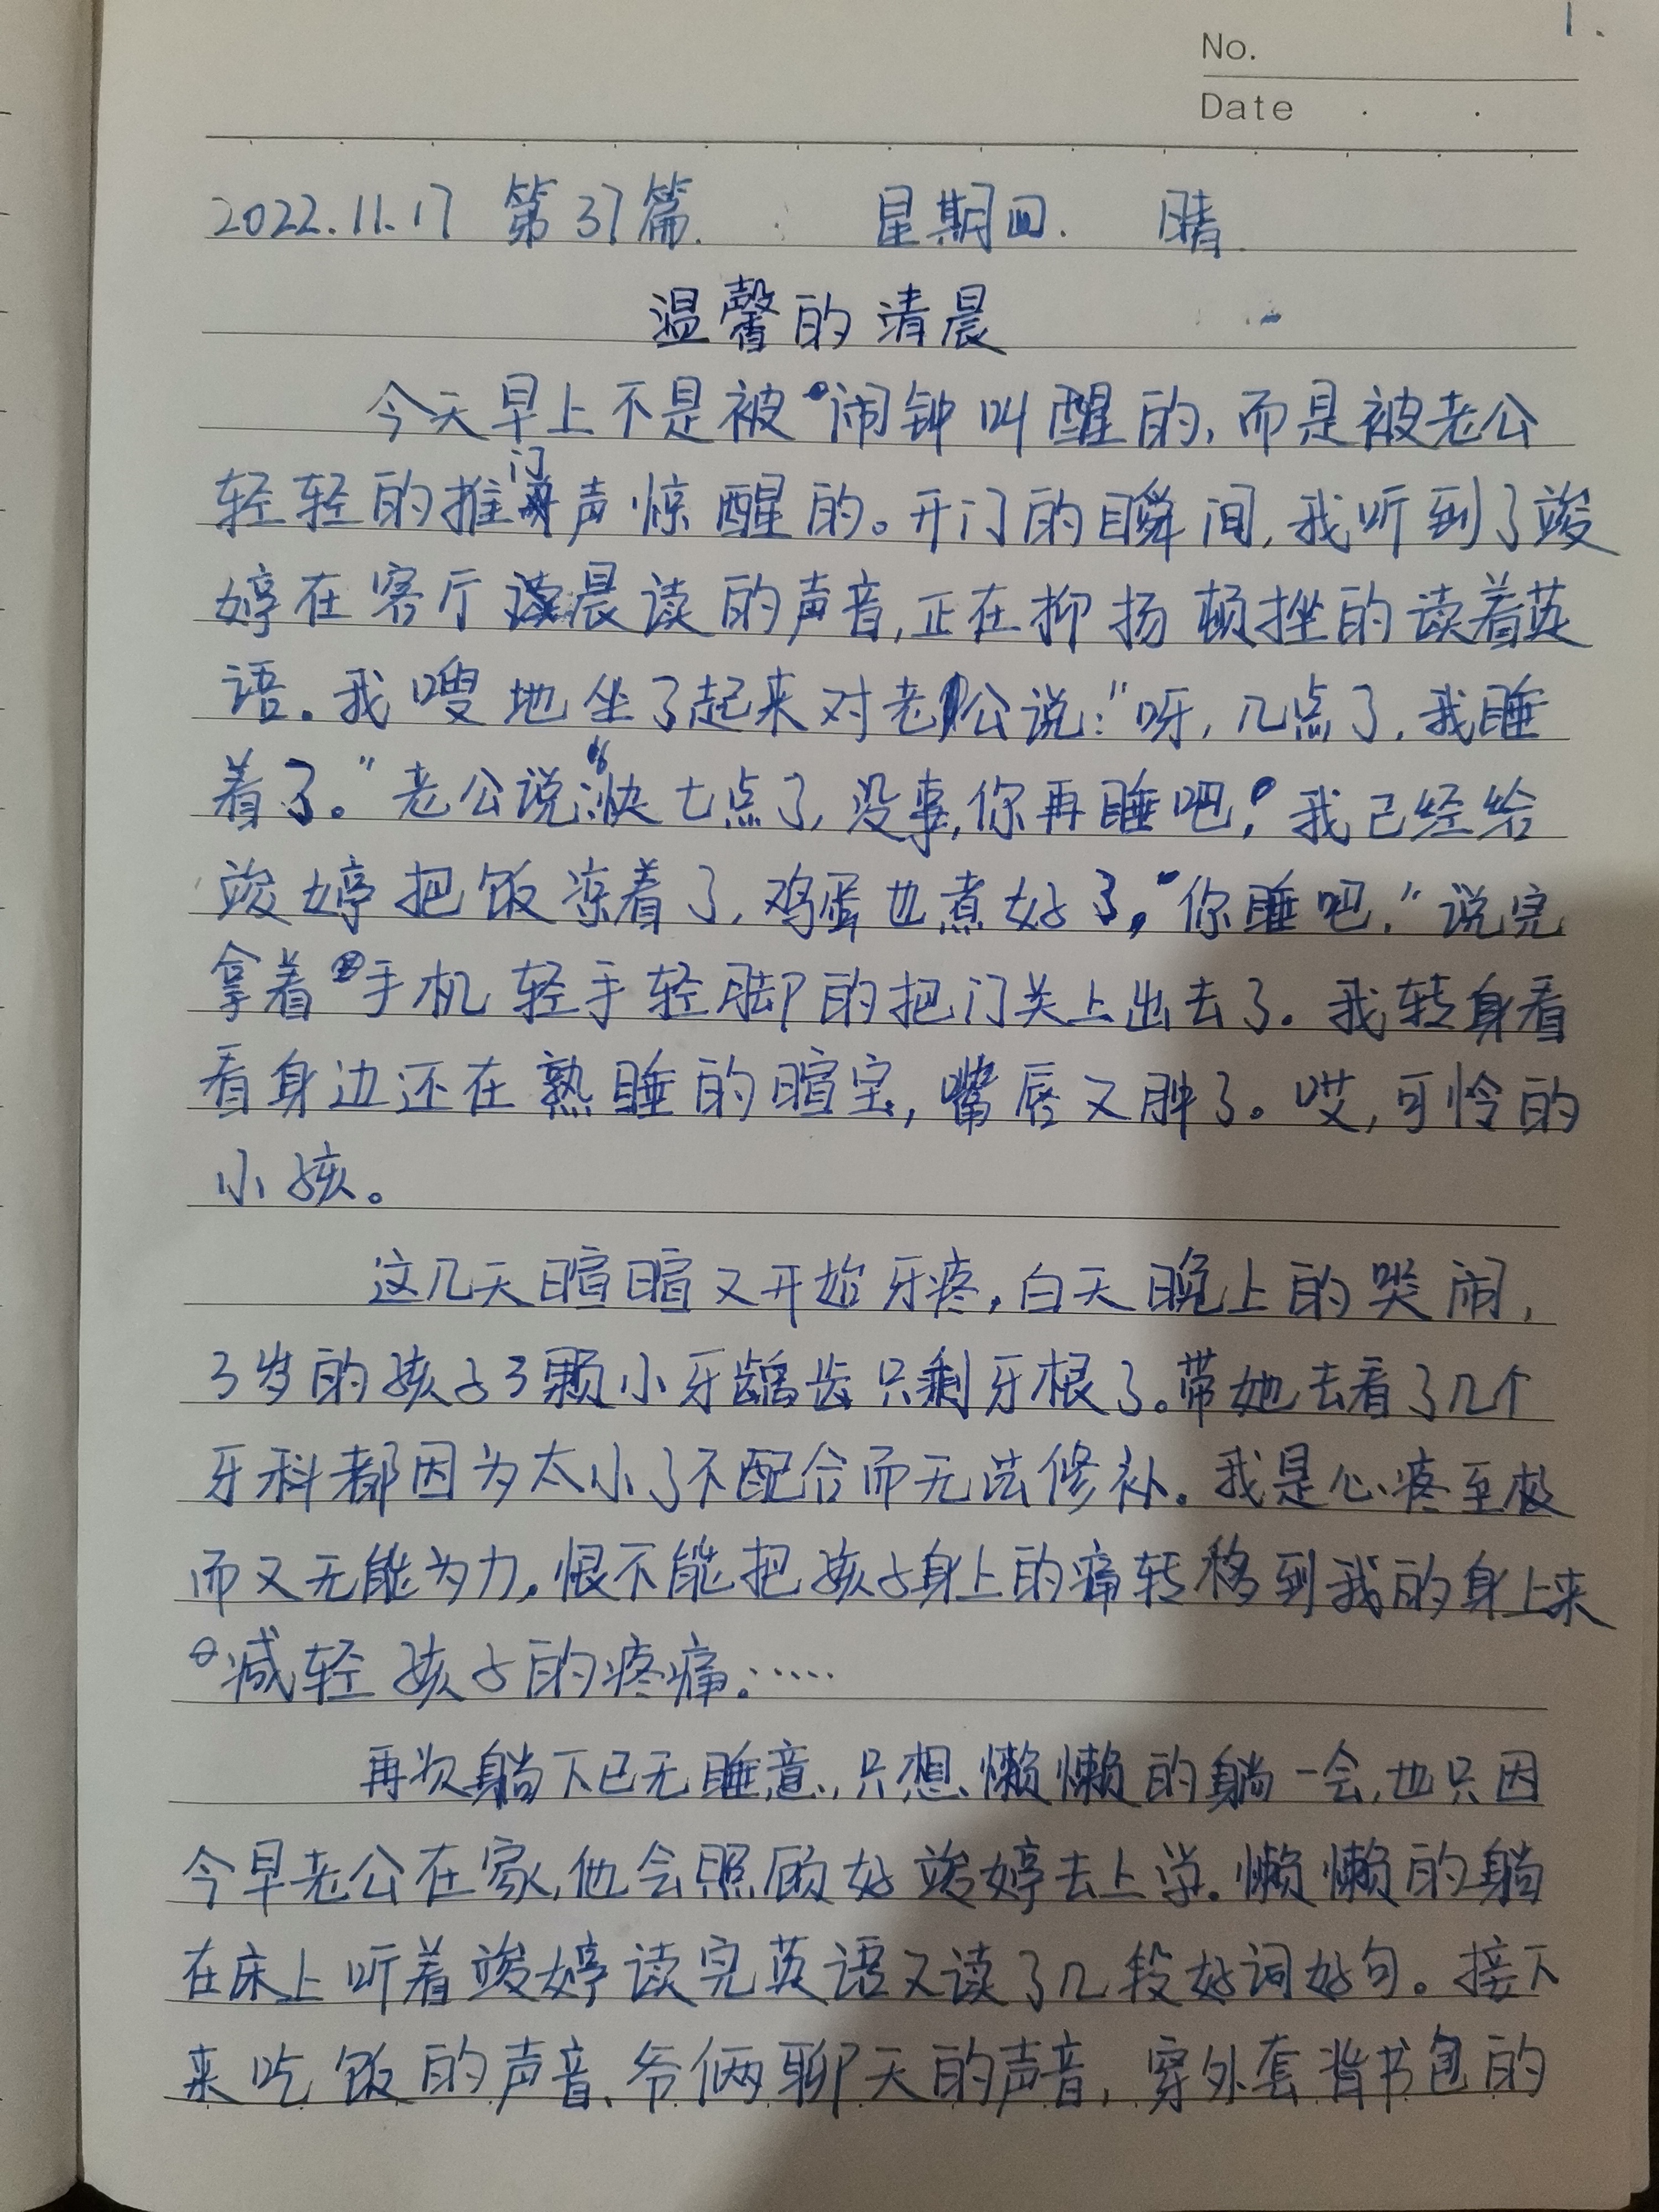 1.
No.
Date
2022.11.17 第37篇. 星期四. 晴.
温馨的清晨
今天早上不是被闹钟叫醒的,而是被老公
轻轻的推门声惊醒的。开门的瞬间,我听到了竣
婷在客厅晨读的声音,正在抑扬顿挫的读着英
语。我嗖地坐了起来对老公说:"呀,几点了,我睡
着了。"老公说:"快七点了,没事,你再睡吧,我已经给
竣婷把饭冻着了,鸡蛋也煮好了,你睡吧."说完
拿着手机轻手轻脚的把门关上出去了。我转身看
看身边还在熟睡的暄宝,嘴唇又肿了。哎,可怜的
小孩。
这几天暄暄又开始牙疼,白天晚上的哭闹,
3岁的孩子3颗小牙龋齿只剩牙根了。带她去看了几个
牙科都因为太小了不配合而无法修补。我是心疼至极
而又无能为力。恨不能把孩子身上的痛转移到我的身上来
减轻孩子的疼痛。……
再次躺下已无睡意,只想懒懒的躺一会,也只因
今早老公在家,他会照顾好竣婷去上学。懒懒的躺
在床上听着竣婷读完英语又读了几段好词好句。接下
来吃饭的声音、爷俩聊天的声音,穿外套背书包的